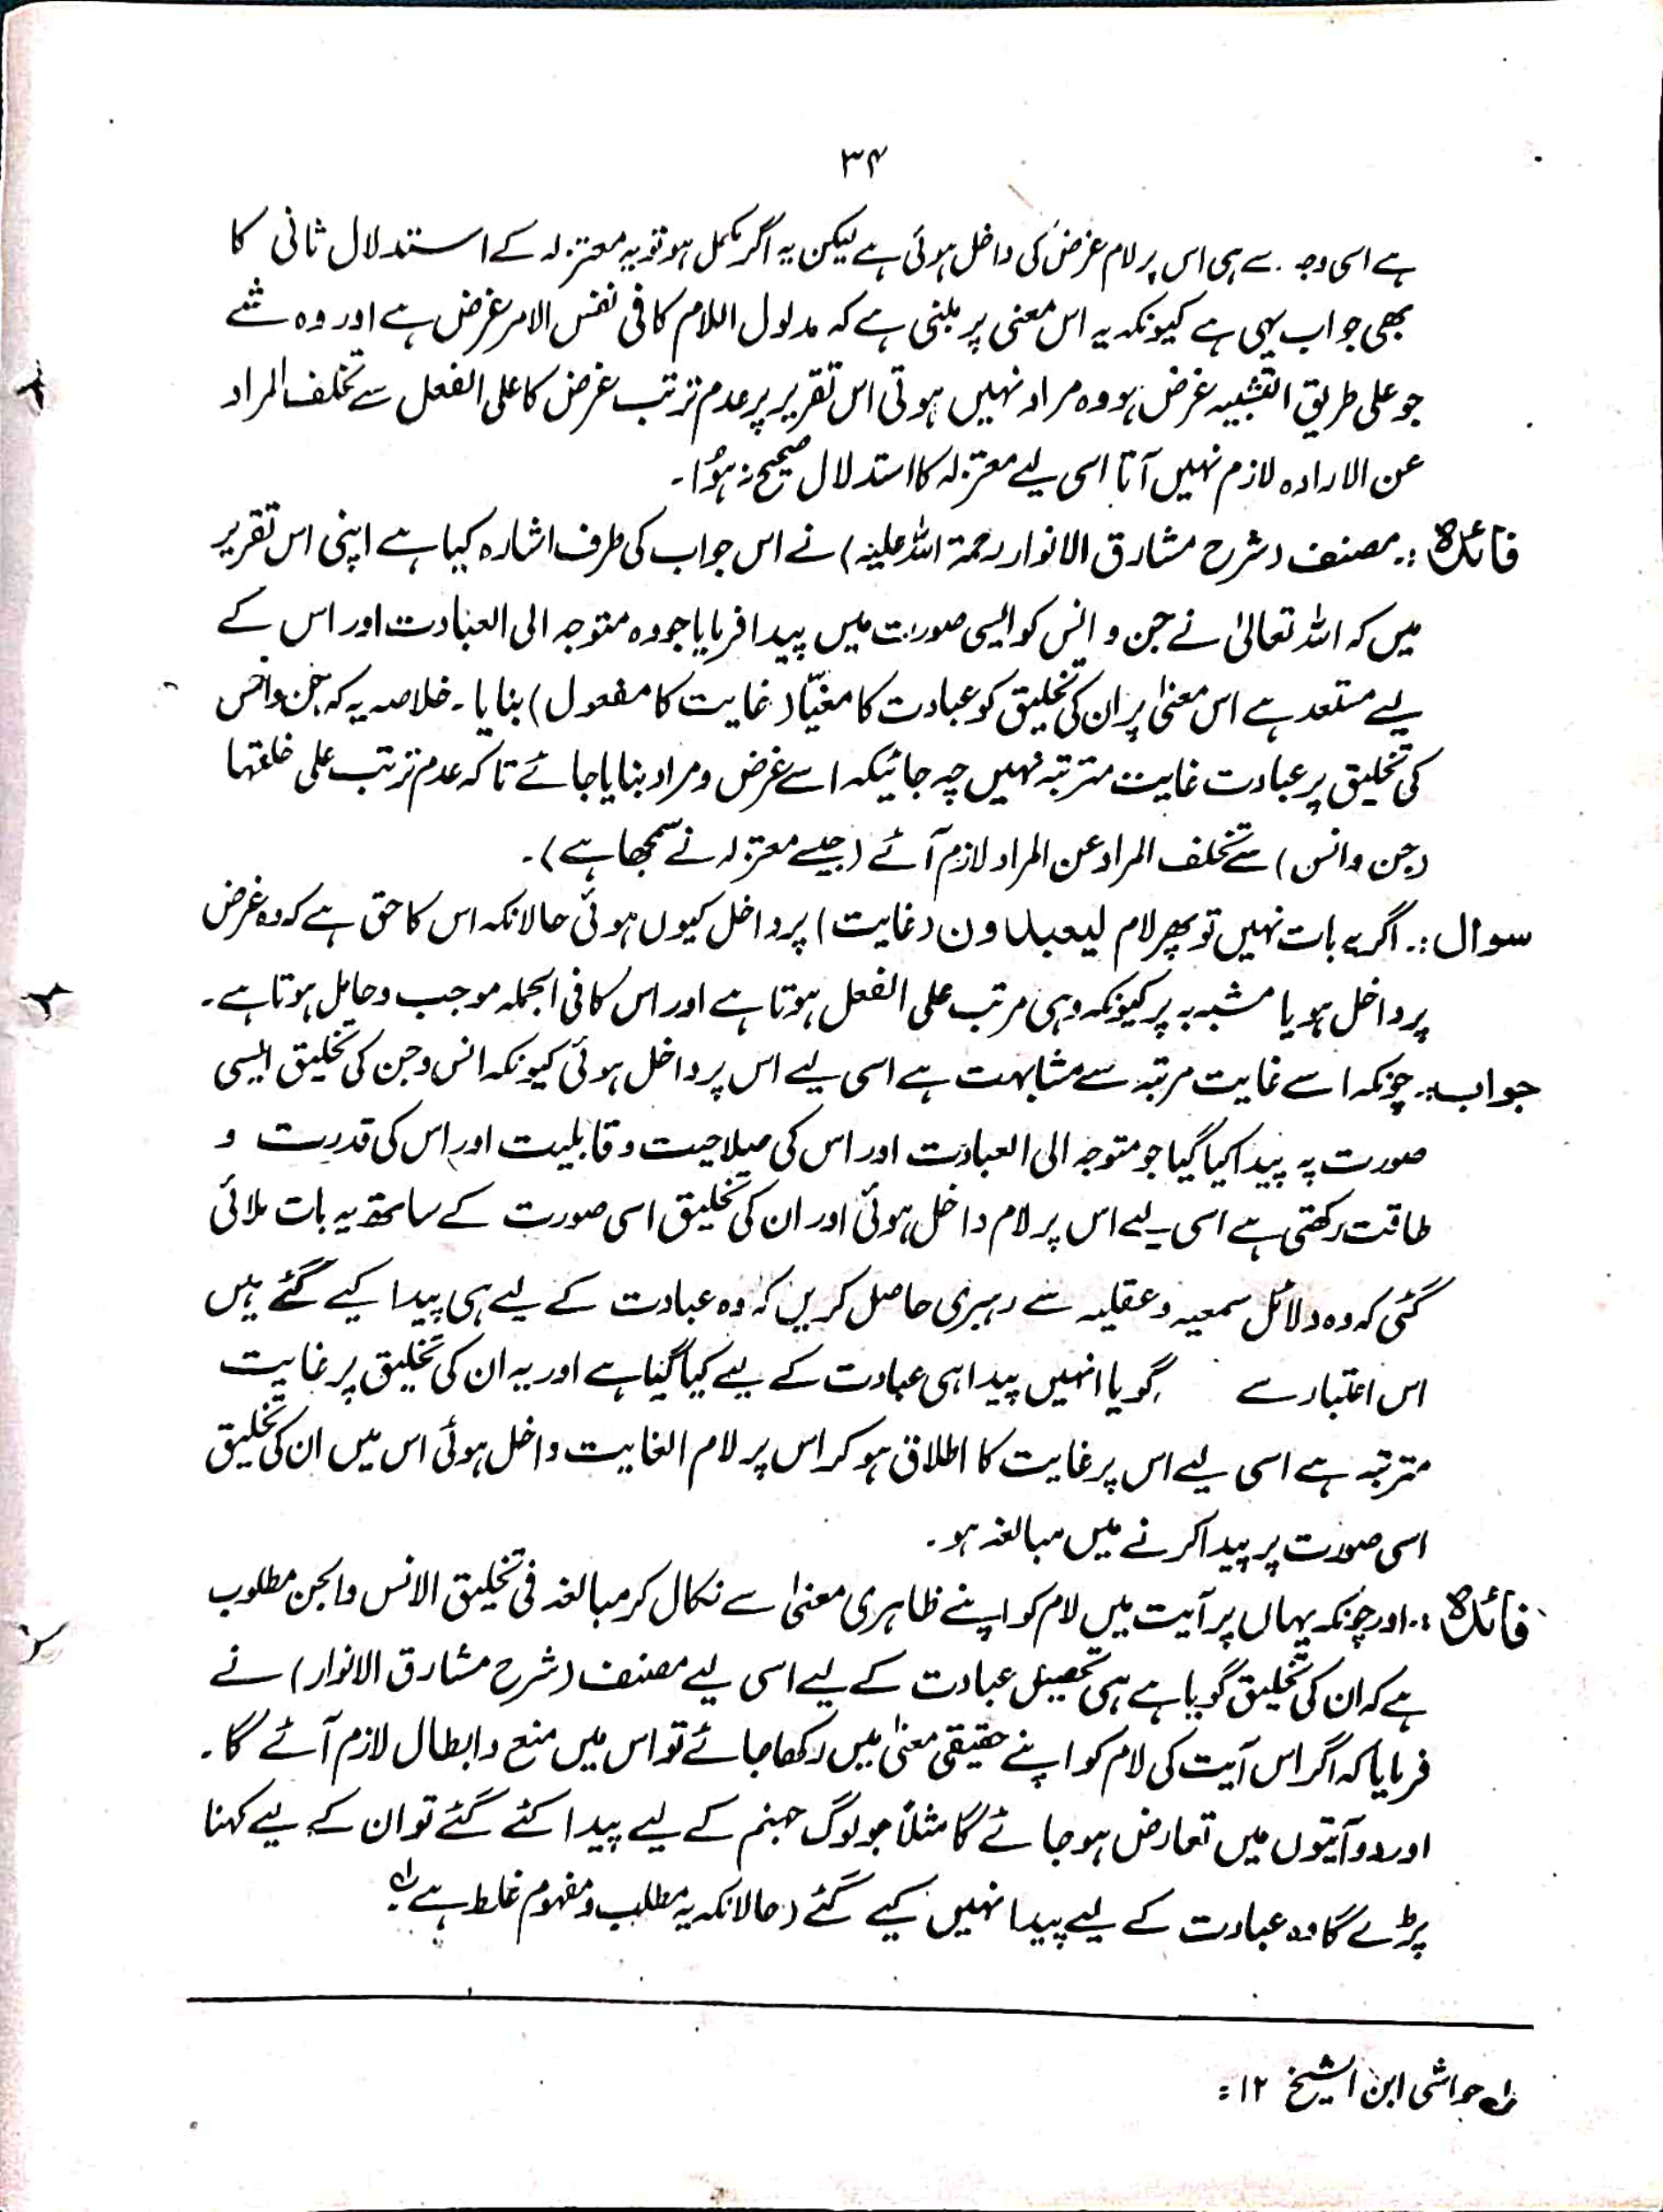 ۳۴
ہے اسی وجہ سے ہی اس پر لام غرض کی داخل ہوئی ہے لیکن یہ اگر مکمل ہو تو یہ معتزلہ کے استدلال ثانی کا
بھی جواب یہی ہے کیونکہ یہ اس معنی پر مبنی ہے کہ مدلول اللام کا فی نفس الامر غرض ہے اور وہ شے
جو علی طریق التشبیہ غرض ہو وہ مراد نہیں ہوتی اس تقریر پر عدم ترتب غرض کا علی الفعل سے تخلف المراد
عن الارادہ لازم نہیں آتا اسی لیے معتزلہ کا استدلال صحیح نہ ہُوا۔
فائدہ :۔ مصنف (شرح مشارق الانوار رحمۃ اللہ علیہ) نے اس جواب کی طرف اشارہ کیا ہے اپنی اس تقریر
میں کہ اللہ تعالیٰ نے جن و انس کو ایسی صورت میں پیدا فرمایا جو وہ متوجہ الی العبادت اور اس کے
لیے مستعد ہے اس معنیٰ پر ان کی تخلیق کو عبادت کا مغیّا (غایت کا مفعول) بنایا۔ خلاصہ یہ کہ جن و انس
کی تخلیق پر عبادت غایت مترتبہ نہیں چہ جائیکہ اسے غرض و مراد بنایا جائے تاکہ عدم ترتب علی خلقتہا
(جن و انس) سے تخلف المراد عن المراد لازم آئے (جیسے معتزلہ نے سمجھا ہے)۔
سوال :۔ اگر یہ بات نہیں تو پھر لام لیعبدون (غایت) پر داخل کیوں ہوئی حالانکہ اس کا حق ہے کہ وہ غرض
پر داخل ہو یا مشبہ بہ پر کیونکہ وہی مرتب علی الفعل ہوتا ہے اور اس کا فی الجملہ موجب و حامل ہوتا ہے۔
جواب :۔ چونکہ اسے غایت مرتبہ سے مشابہت ہے اسی لیے اس پر داخل ہوئی کیونکہ انس و جن کی تخلیق ایسی
صورت پہ پیدا کیا گیا جو متوجہ الی العبادت اور اس کی صلاحیت و قابلیت اور اس کی قدرت و
طاقت رکھتی ہے اسی لیے اس پر لام داخل ہوئی اور ان کی تخلیق اسی صورت کے ساتھ یہ بات ملائی
گئی کہ وہ دلائل سمعیہ و عقلیہ سے رہبری حاصل کریں کہ وہ عبادت کے لیے ہی پیدا کیے گئے ہیں
اس اعتبار سے گویا انہیں پیدا ہی عبادت کے لیے کیا گیا ہے اور یہ ان کی تخلیق پر غایت
مترتبہ ہے اسی لیے اس پر غایت کا اطلاق ہو کر اس پر لام الغایت داخل ہوئی اس میں ان کی تخلیق
اسی صورت پر پیدا کرنے میں مبالغہ ہو۔
فائدہ :۔ اور چونکہ یہاں پر آیت میں لام کو اپنے ظاہری معنیٰ سے نکال کر مبالغہ فی تخلیق الانس والجن مطلوب
ہے کہ ان کی تخلیق گویا ہے ہی تحصیل عبادت کے لیے اسی لیے مصنف (شرح مشارق الانوار) نے
فرمایا کہ اگر اس آیت کی لام کو اپنے حقیقی معنیٰ میں رکھا جائے تو اس میں منع و ابطال لازم آئے گا۔
اور دو آیتوں میں تعارض ہو جائے گا مثلاً جو لوگ جہنم کے لیے پیدا کئے گئے تو ان کے لیے کہنا
پڑے گا وہ عبادت کے لیے پیدا نہیں کیے گئے (حالانکہ یہ مطلب و مفہوم غلط ہے)؎۱
؎۱ حواشی ابن الشیخ ۱۲ =